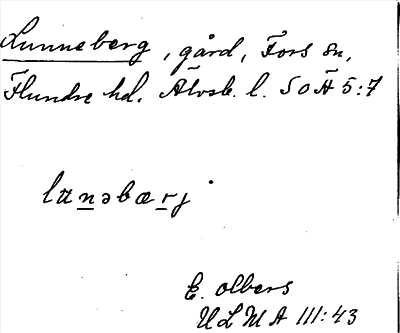 Lunneberg, gård, Fors sn,
Flundre hd. Älvsb. l. SOÄ 5:7
lʉnəbærj
E. Olbers
ULMA 111:43